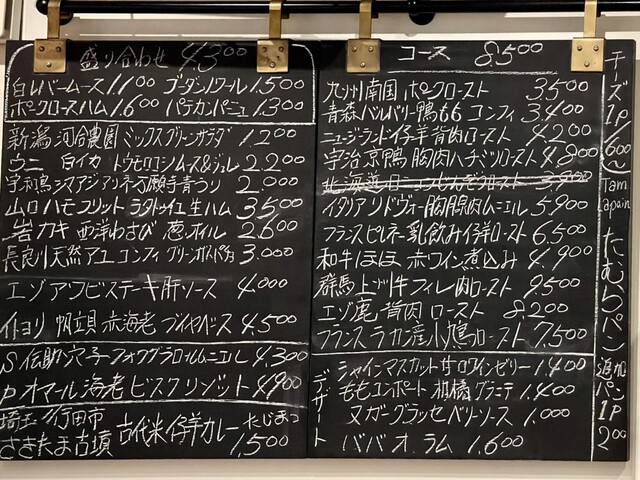 盛り合わせ 4300
白レバームース 1.100 ゴーダントワール 1.500
ポークロースハム 1.600 パテカンパーニュ 1.300
新潟 河合農園 ミックスグリーンサラダ 1.200
ウニ 白イカ トウモロコシムース&ジュレ 2.200
宇和島シマアジ 万願寺青うり 2.000
山口ハモフリット ラタトゥイユ生ハム 3500
岩ガキ 西洋わさび 葱オイル 2600
長良川天然アユ コンフィ グリーンガスパチョ 3.000
エゾアワビステーキ肝ソース 4.000
イトヨリ 帆立貝 赤海老 ブイヤベース 4.500
S 伝助穴子フォアグラロールムニエル 4.300
P オマール海老 ビスクリゾット 4900
埼玉 行田市
さきたま古墳 古代米仔羊カレー たじまっこ 1,500
コース 8500
九州南国 ポークロースト 3500
青森バルバリー鴨もも コンフィ 3.400
ニュージーランド仔羊背肉ロースト 4200
宇治京鴨 胸肉ハチミツロースト 4.800
北海道
イタリアリドヴォー胸腺肉ムニエル 5.900
フランスピレネー乳飲み仔羊ロースト 6.500
和牛ほほ 赤ワイン煮込み 4.900
群馬上州牛フィレ肉ロースト 9500
エゾ鹿 背肉 ロースト 8200
フランス ラカン産小鳩ロースト 7.500
デザート
シャインマスカット サロワインゼリー 1.400
ももコンポート 柑橘グラニテ 1.400
ヌガーグラッセ ベリーソース 1.000
ババ オ ラム 1.600
チーズ 1P 600〜
1am apain たむらパン 追加パン 1P 200